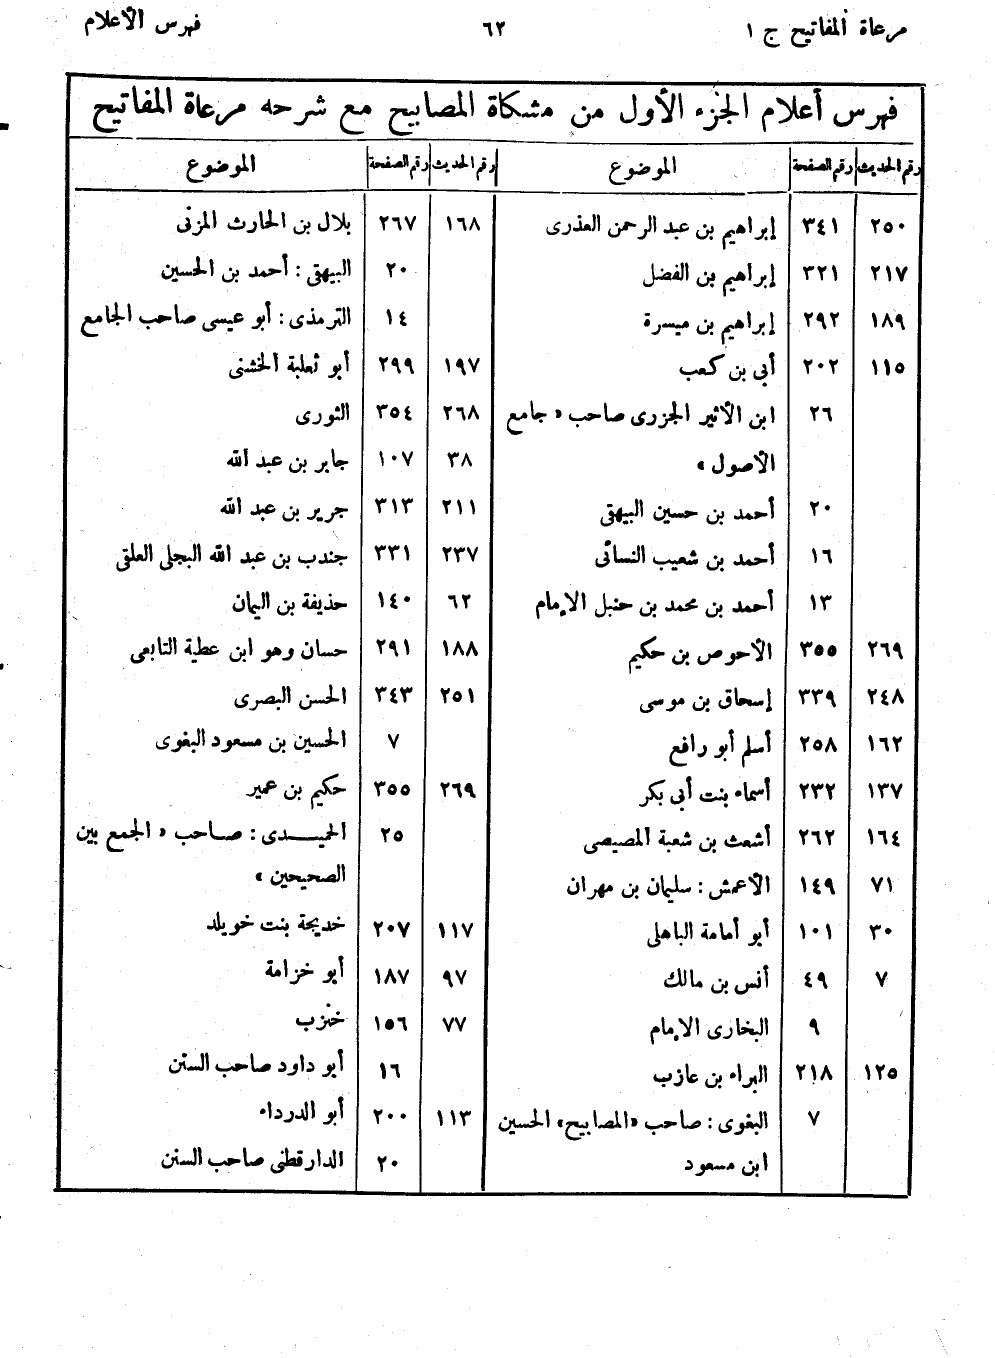 مرعاة المفاتيح ج ١ ٦٢ فهرس الأعلام
فهرس أعلام الجزء الأول من مشكاة المصابيح مع شرحه مرعاة المفاتيح
رقم الحديث رقم الصفحة الموضوع رقم الحديث رقم الصفحة الموضوع
٢٥٠ ٣٤١ إبراهيم بن عبد الرحمن العذرى ١٦٨ ٢٦٧ بلال بن الحارث المزنى
٢١٧ ٣٢١ إبراهيم بن الفضل ٢٠ البيهقى : أحمد بن الحسين
١٨٩ ٢٩٢ إبراهيم بن ميسرة ١٤ الترمذى : أبو عيسى صاحب الجامع
١١٥ ٢٠٢ أبى بن كعب ١٩٧ ٢٩٩ أبو ثعلبة الخشنى
٢٦ ابن الأثير الجزرى صاحب « جامع ٢٦٨ ٣٥٤ الثورى
الأصول » ٣٨ ١٠٧ جابر بن عبد الله
٢٠ أحمد بن حسين البيهقى ٢١١ ٣١٣ جرير بن عبد الله
١٦ أحمد بن شعيب النسائى ٢٣٧ ٣٣١ جندب بن عبد الله البجلى العلقى
١٣ أحمد بن محمد بن حنبل الإمام ٦٢ ١٤٠ حذيفة بن اليمان
٢٦٩ ٣٥٥ الأحوص بن حكيم ١٨٨ ٢٩١ حسان وهو ابن عطية التابعى
٢٤٨ ٣٣٩ إسحاق بن موسى ٢٥١ ٣٤٣ الحسن البصرى
١٦٢ ٢٥٨ أسلم أبو رافع ٧ الحسين بن مسعود البغوى
١٣٧ ٢٣٢ أسماء بنت أبى بكر ٢٦٩ ٣٥٥ حكيم بن عمير
١٦٤ ٢٦٢ أشعث بن شعبة المصيصى ٢٥ الحميــدى : صاحب « الجمع بين
٧١ ١٤٩ الأعمش : سليمان بن مهران الصحيحين »
٣٠ ١٠١ أبو أمامة الباهلى ١١٧ ٢٠٧ خديجة بنت خويلد
٧ ٤٩ أنس بن مالك ٩٧ ١٨٧ أبو خزامة
٩ البخارى الإمام ٧٧ ١٥٦ خنزب
١٢٥ ٢١٨ البراء بن عازب ١٦ أبو داود صاحب السنن
٧ البغوى : صاحب «المصابيح» الحسين ١١٣ ٢٠٠ أبو الدرداء
ابن مسعود ٢٠ الدارقطنى صاحب السنن